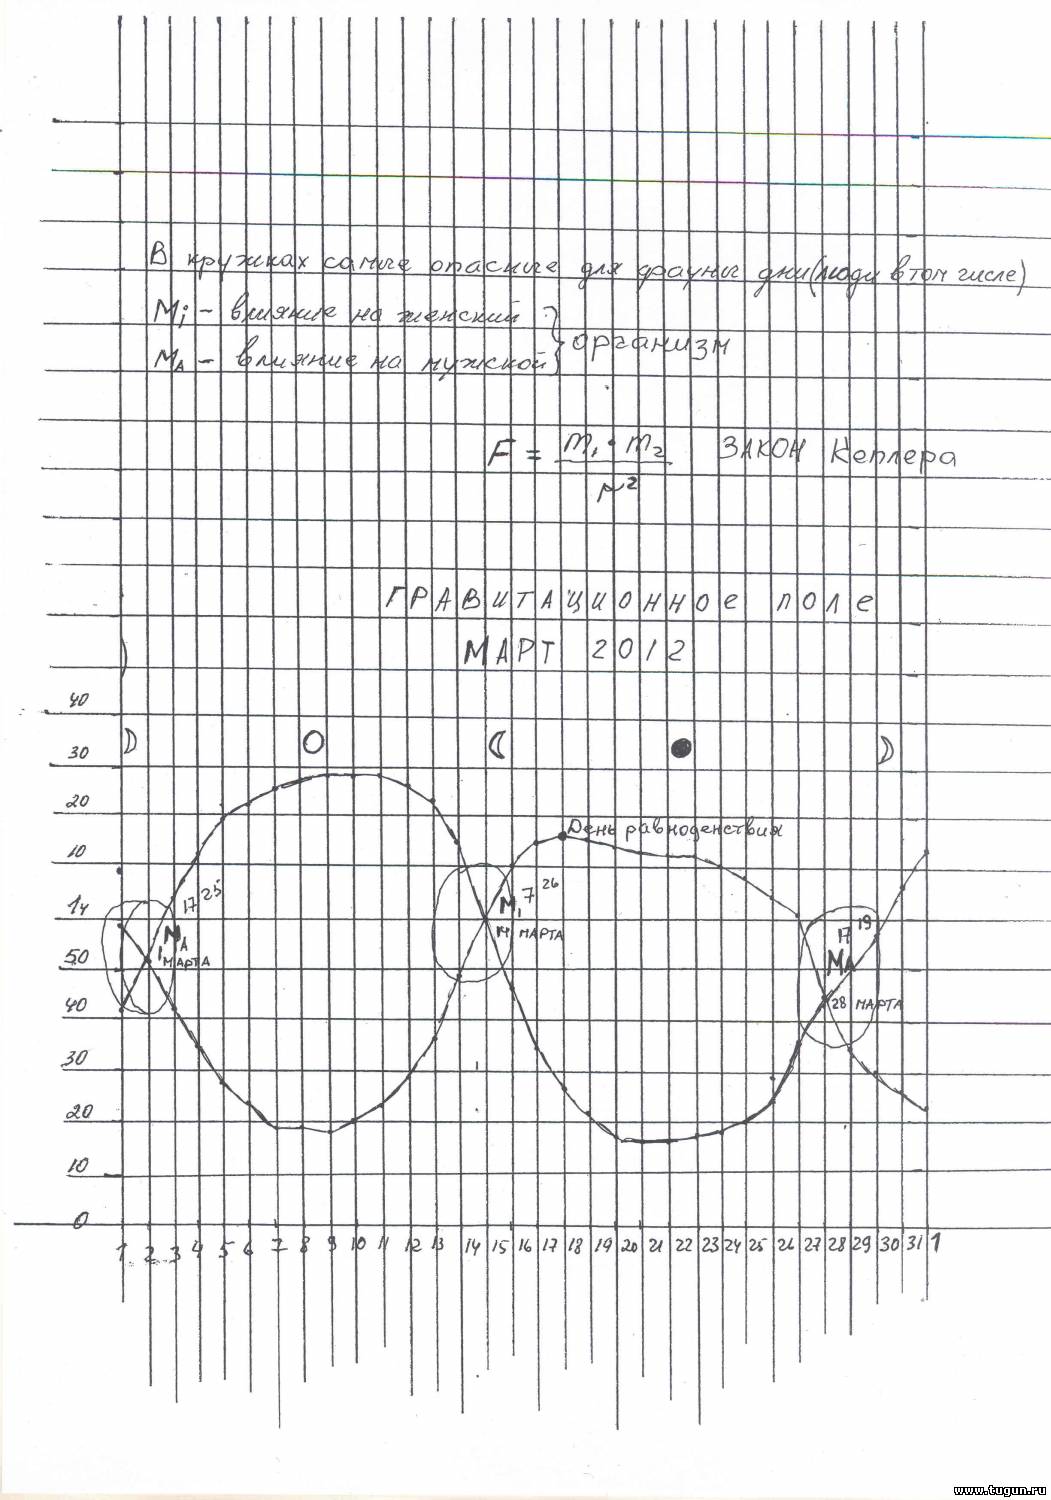 В кружках самые опасные для фауны дни (люди в том числе)
Mi – влияние на женский
MA – влияние на мужской
} организм
F = m1 · m2 / r2 ЗАКОН Кеплера
ГРАВИТАЦИОННОЕ ПОЛЕ
МАРТ 2012
40
30
20
10
14
50
40
30
20
10
0
День равноденствия
17 25
MA
1 МАРТА
7 26
M1
14 МАРТА
17 19
MA
28 МАРТА
1 2 3 4 5 6 7 8 9 10 11 12 13 14 15 16 17 18 19 20 21 22 23 24 25 26 27 28 29 30 31 1
www.tugun.ru